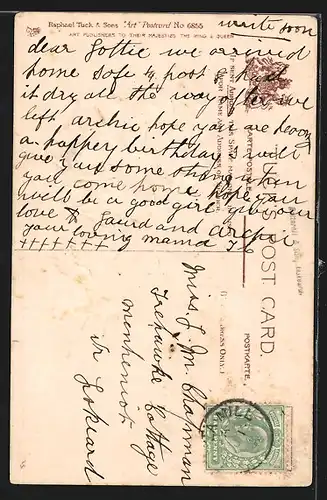 Raphael Tuck & Sons "Art" Postcard No 6855
ART PUBLISHERS TO THEIR MAJESTIES THE KING & QUEEN
write soon
dear Lottie we arrived
home safe ¼ post 9 had
it dry all the way after we
left archie hope you are having
a happy birthday will
give you some thing when
you come home hope you
will be a good girl give our
love to Laurd and archie
your loving mama
+++++++
CARTE POSTALE
POST CARD.
POSTKARTE.
Miss. L. M. Chapman
Trehawke Cottage
menheniot
Nr Liskeard